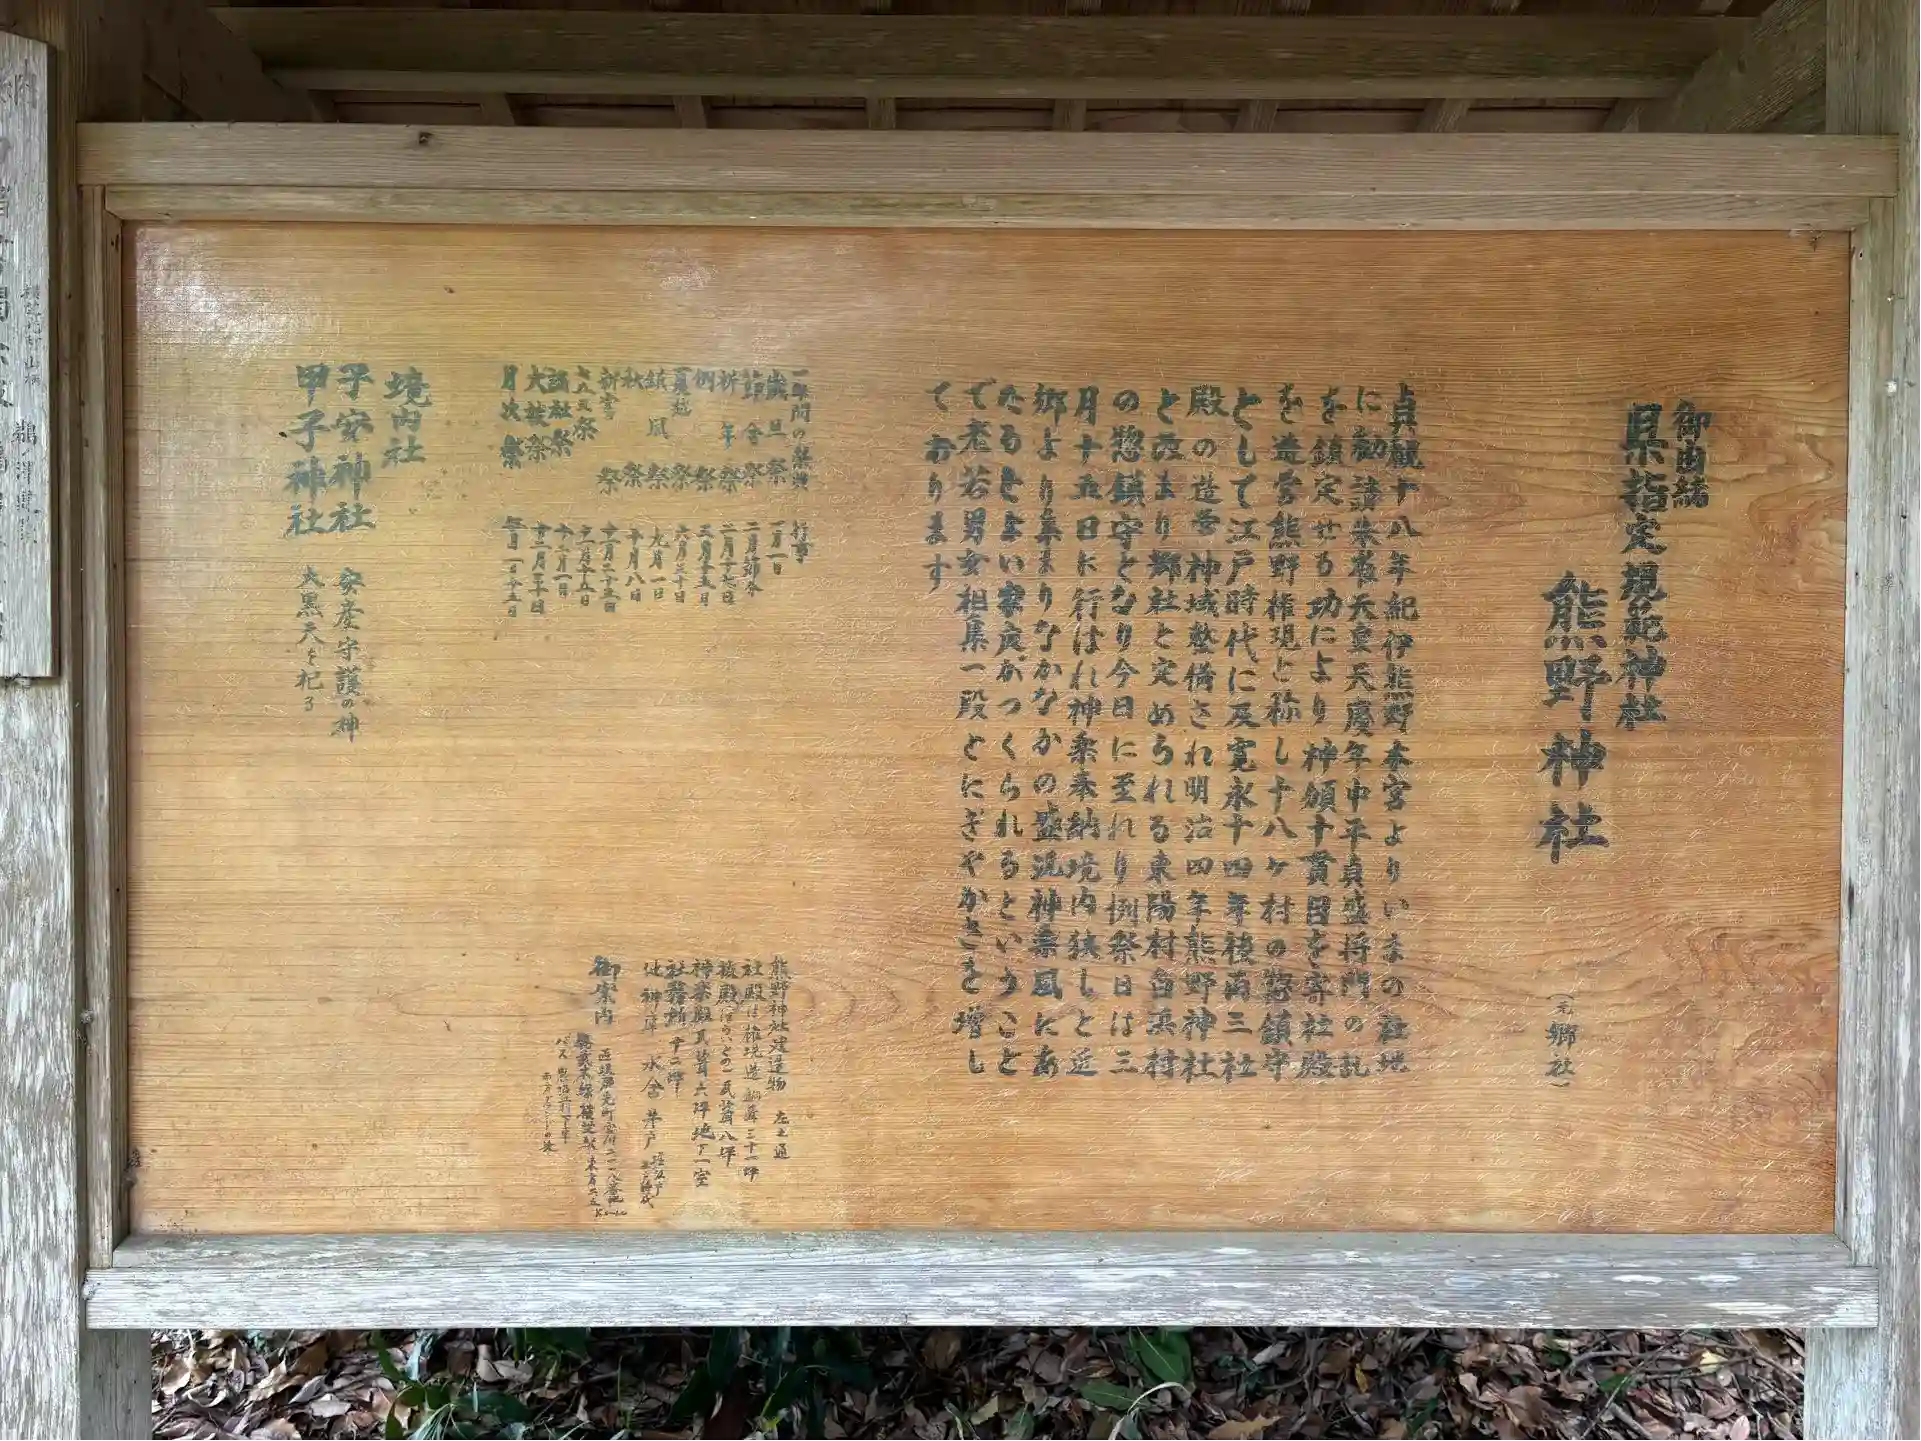 御由緒
県指定規範神社
熊野神社
(元郷社)
貞観十八年紀伊熊野本宮よりいまの社地
に勧請朱雀天皇天慶年中平貞盛将門の乱
を鎮定せる功により神領十貫目を寄社殿
を造営熊野権現と称し十八ヶ村の惣鎮守
として江戸時代に及寛永十四年後両三社
殿の造営神域整備され明治四年熊野神社
と改まり郷社と定められる東陽村白浜村
の惣鎮守となり今日に至れり例祭日は三
月十五日に行はれ神楽奉納境内狭しと近
郷より集まりなかなかの盛況神楽風にあ
たるとよい家庭がつくられるということ
で老若男女相集一段とにぎやかさを増し
ております
一年間の祭典 行事
歳旦祭 一月一日
節分祭 二月節分
祈年祭 二月十七日
例祭 三月十五日
夏越祭 六月三十日
鎮風祭 九月一日
秋祭 十月八日
新穀祭 十一月二十三日
七五三祭 十一月十五日
諸社祭 十二月一日
大祓祭 十二月三十日
月次祭 毎月一日十五日
熊野神社建造物 左之通
社殿は権現造 銅葺三十一坪
瓦葺八坪
神楽殿瓦葺六坪地下一室
社務所 十二坪
他神庫 水舎 井戸
御案内
匝瑳郡光町宮川
総武本線横芝駅東方
バス
境内社
子安神社 安産守護の神
甲子神社 大黒天を祀る